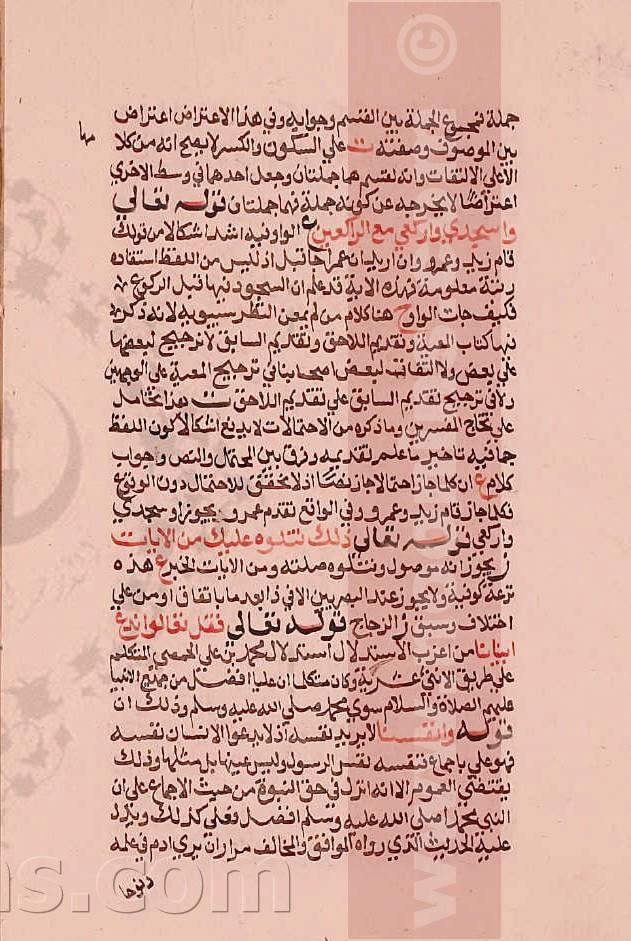 جملة مجموع الجملة بين القسم وجوابه وفي هذا الاعتراض اعتراض
بين الموصوف وصفته ت علي السكون والكسر لا يصح انه من كلا
الأعلي الالتفات وانه لقسم هما جملتان وجعل احدهما في وسط الاخري
اعتراضا لا يخرجه عن كونه جملة فهما جملتان قوله تعالي
واسجدي واركعي مع الراكعين ع الواو فيه اشد اشكالا من قولك
قام زيد وعمرو وان اريد ان عمرا جا قبل اذ ليس من اللفظ استفاده
رتبة معلومة فهذه الاية قد علم ان السجود فيها قبل الركوع
فكيف جات الواو ح هذا كلام من لم يمعن النظر سيبويه لانه ذكره
فيها كتاب المعية وتقديم اللاحق وتقديم السابق لا ترجيح لبعضها
علي بعض ولا التفات لبعض اصحابنا في ترجيح المعية علي الوجهين
ولا في ترجيح تقديم السابق علي تقديم اللاحق ت هذا تحامل
علي المفسرين وما ذكره من الاحتمالات لا يدفع اشكالا كون اللفظ
جا فيه تاخير ما علم تقديمه وفرق بين المحتمل والنص وجواب
كلام ع ان كلما جاز احتمالا جاز نصا اذ لا يخفق للاحتمال دون الوقوع
فكلما جاز قام زيد وعمرو وفي الواقع تقدم عمرو ويجوز واسجدي
واركعي قوله تعالي ذلك نتلوه عليك من الايات
ز يجوز انه موصول ونتلوه صلته ومن الايات الخبر ع هذه
نزعة كوفية ولا يجوز عند البصريين الا في ذا بعد ما باتفاق او من علي
اختلاف وسبق ز الزجاج قوله تعالي فقل تعالوا ندع
ابناءنا من اغرب الاستدلال استدلال محمد بن علي الحمصي المتكلم
علي طريق الاثني عشرية وكان متكلما ان عليا افضل من جميع الانبيا
عليهم الصلاة والسلام سوي محمد صلي الله عليه وسلم وذلك ان
قوله وانفسنا لا يريد نفسه اذ لا يدعوا الانسان نفسه
فهو علي باجماع فنفسه نفس الرسول وليس عينها بل مثلها وذلك
يقتضي العموم الا انه انزل في حق النبوة من حيث الاجماع علي ان
النبي محمدا صلي الله عليه وسلم افضل فعلي كذلك ويدل
عليه الحديث الذي رواه الموافق والمخالف من اراد ان يري ادم في علمه
ونوحا